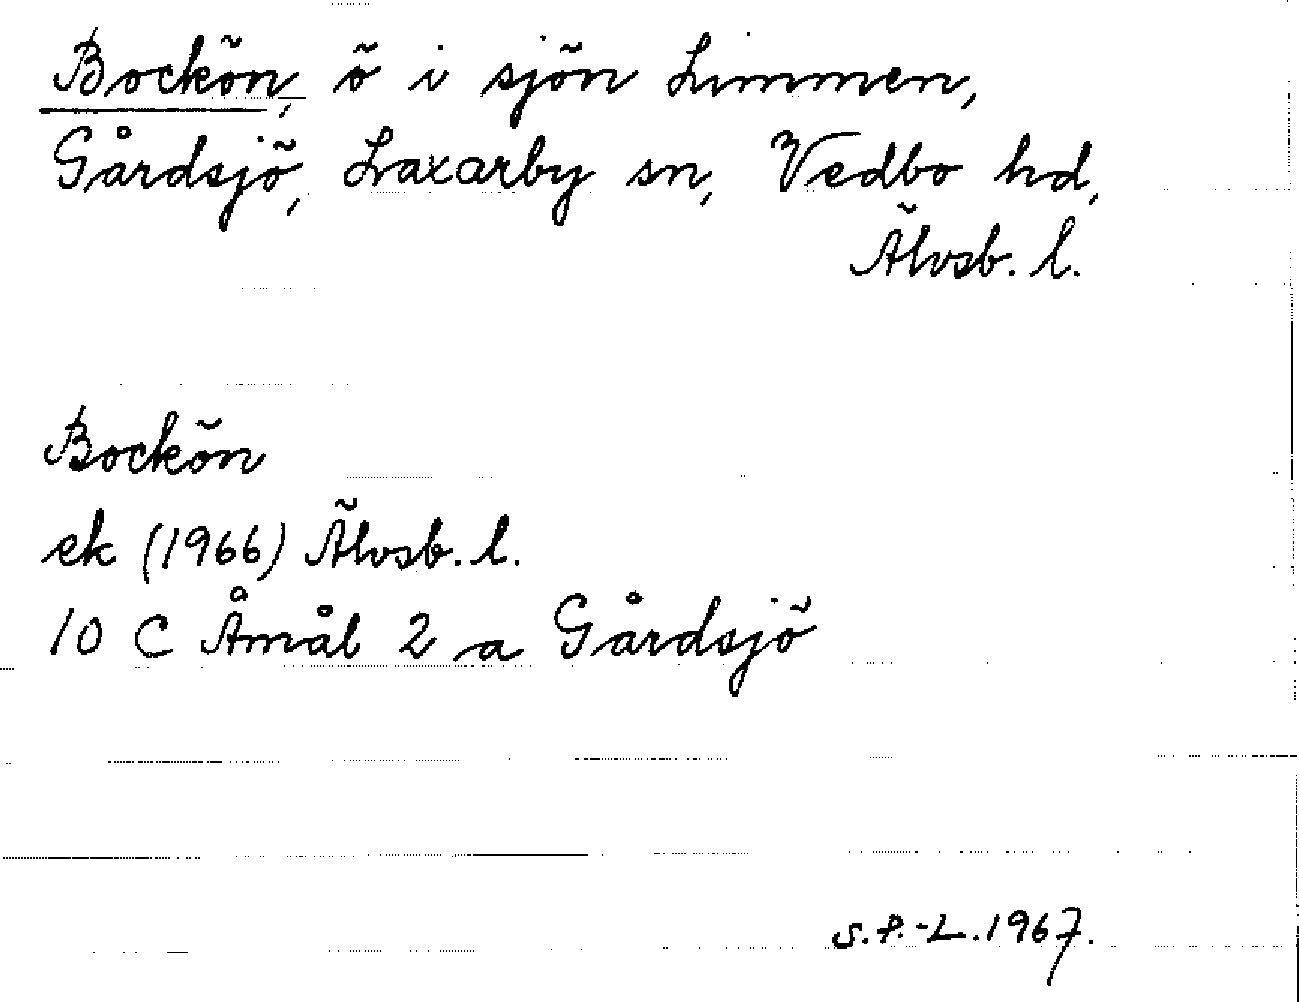 Bockön, ö i sjön Limmen,
Gårdsjö, Laxarby sn, Vedbo hd,
Älvsb. l.
Bockön
ek (1966) Älvsb. l.
10 C Åmål 2 a Gårdsjö
S.P.-L. 1967.